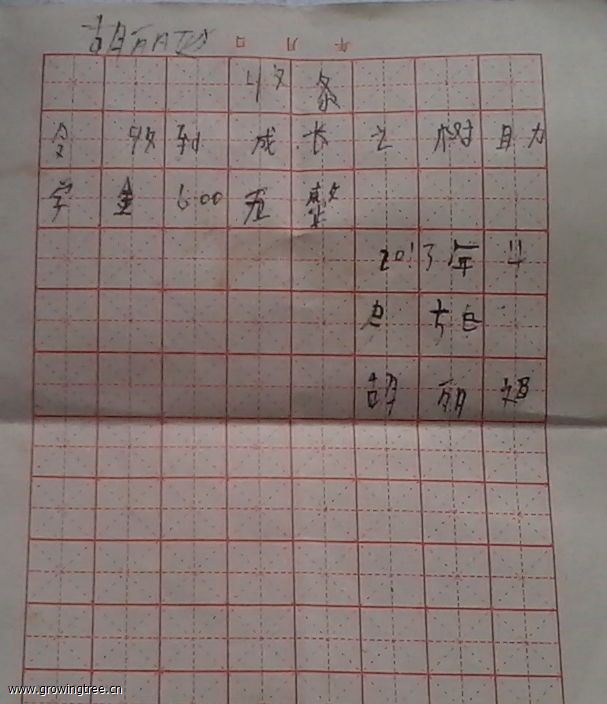 胡丽妲 日 月 年
收条
今 收到 成长之树助
学金600元整
2013年
胡丽妲
www.growingtree.cn